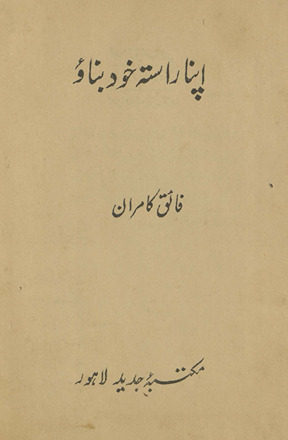 اپنا راستہ خود بناؤ
فائق کامران
مکتبۂ جدید لاہور